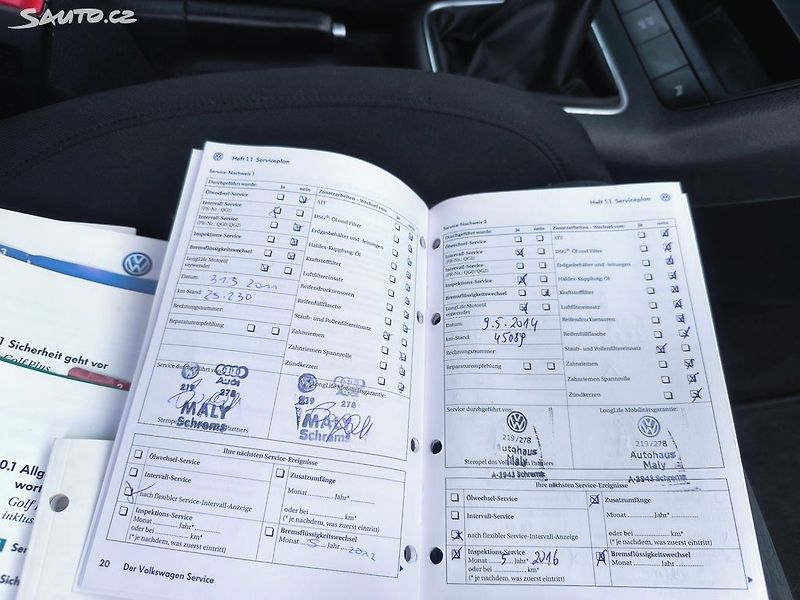 SAUTO.CZ
Heft 1.1 Serviceplan
Service-Nachweis 1
Durchgeführt wurde: ja nein Zusatzarbeiten - Wechsel von: ja nein
Ölwechsel-Service
ATF
Intervall-Service
(PR-Nr.: QG1)
DSG®: Öl und Filter
Intervall-Service
(PR-Nr.: QG0/QG2)
Erdgasbehälter und -leitungen
Inspektions-Service
Haldex-Kupplung: Öl
Bremsflüssigkeitswechsel
Kraftstofffilter
LongLife Motoröl
verwendet
Luftfiltereinsatz
Datum: 31.3 2011
Reifendrucksensoren
km-Stand: 23.230
Reifenfüllflasche
Rechnungsnummer:
Staub- und Pollenfiltereinsatz
Reparaturempfehlung
Zahnriemen
Zahnriemen Spannrolle
Zündkerzen
Service durchgeführt von:
LongLife Mobilitätsgarantie:
Audi
219 278
MALY
Schrems
219 278
MALY
Schrems
Stempel des Volkswagen Partners
Ihre nächsten Service-Ereignisse
Ölwechsel-Service
Zusatzumfänge
Intervall-Service
Monat Jahr*
nach flexibler Service-Intervall-Anzeige
oder bei km*
(* je nachdem, was zuerst eintritt)
Inspektions-Service
Monat Jahr*
oder bei km*
(* je nachdem, was zuerst eintritt)
Bremsflüssigkeitswechsel
Monat 5 Jahr 2012
20 Der Volkswagen Service
Heft 1.1 Serviceplan
Service-Nachweis 2
Durchgeführt wurde: ja nein Zusatzarbeiten - Wechsel von: ja nein
Ölwechsel-Service
ATF
Intervall-Service
(PR-Nr.: QG1)
DSG®: Öl und Filter
Intervall-Service
(PR-Nr.: QG0/QG2)
Erdgasbehälter und -leitungen
Inspektions-Service
Haldex-Kupplung: Öl
Bremsflüssigkeitswechsel
Kraftstofffilter
LongLife Motoröl
verwendet
Luftfiltereinsatz
Datum: 9.5.2014
Reifendrucksensoren
km-Stand: 45089
Reifenfüllflasche
Rechnungsnummer:
Staub- und Pollenfiltereinsatz
Reparaturempfehlung
Zahnriemen
Zahnriemen Spannrolle
Zündkerzen
Service durchgeführt von:
LongLife Mobilitätsgarantie:
219/278
Autohaus
Maly
A-3943 Schrems
219/278
Autohaus
Maly
A-3943 Schrems
Stempel des Volkswagen Partners
Ihre nächsten Service-Ereignisse
Ölwechsel-Service
Zusatzumfänge
Intervall-Service
Monat Jahr*
nach flexibler Service-Intervall-Anzeige
oder bei km*
(* je nachdem, was zuerst eintritt)
Inspektions-Service
Monat 5 Jahr* 2016
oder bei km*
(* je nachdem, was zuerst eintritt)
Bremsflüssigkeitswechsel
Monat Jahr
1 Sicherheit geht vor
Golf Plus
0.1 Allg
Golf
inklus
Ser
Sich